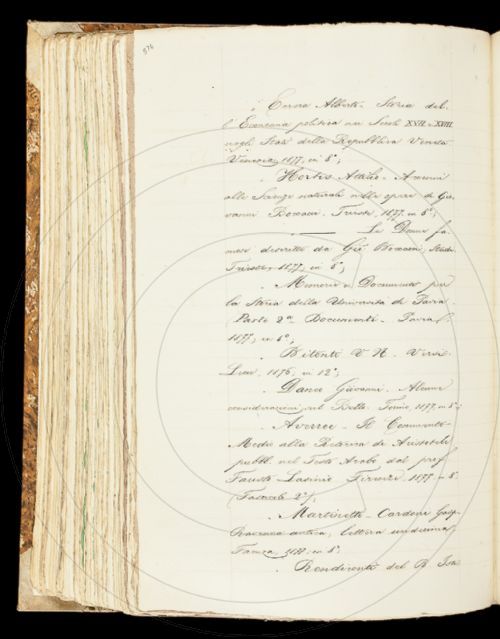 576
Errera Alberto. Storia del-
l'Economia politica nei Secoli XVII e XVIII
negli Stati della Repubblica Veneta.
Venezia, 1877, in 8°;
Hortis Attilio. Accenni
alle Scienze naturali nelle opere di Gio-
vanni Boccacci. Trieste, 1877, in 8°;
— Le Donne fa-
mose descritte da Gio. Boccacci, Studi
Trieste, 1877, in 8°;
Memorie e Documenti per
la Storia della Università di Pavia.
Parte 2ª Documenti. Pavia,
1877, in 8°;
V. R. Versi.
1876, in 12°;
Daneo Giovanni. Alcune
considerazioni sul Bello. Torino, 1877, in 8°;
Averroe. Il Commento
Medio alla Retorica di Aristotele
pubbl. nel Testo Arabo dal prof.
Fausto Lasinio. Firenze 1877 in 8°
(Fascicolo 2°);
Martinetti-Cardoni Gasp.
Ravenna antica, lettera undecima,
Faenza, in 8°;
Rendiconti del R. Isti